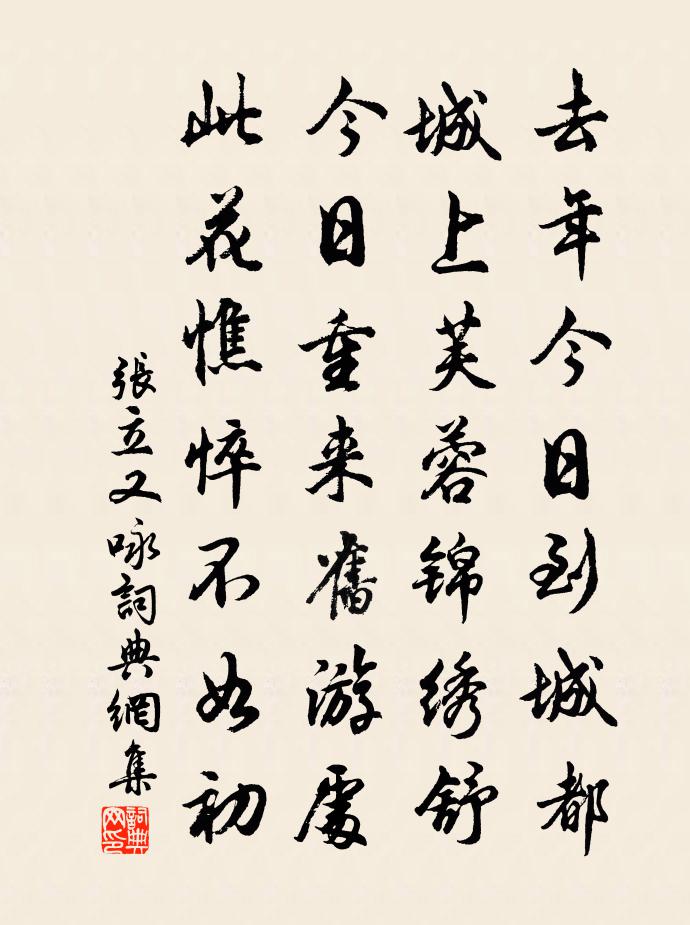 去年今日到城都
城上芙蓉锦绣舒
今日重来舊游處
此花憔悴不如初
張立又咏詞典網集
詞典網印